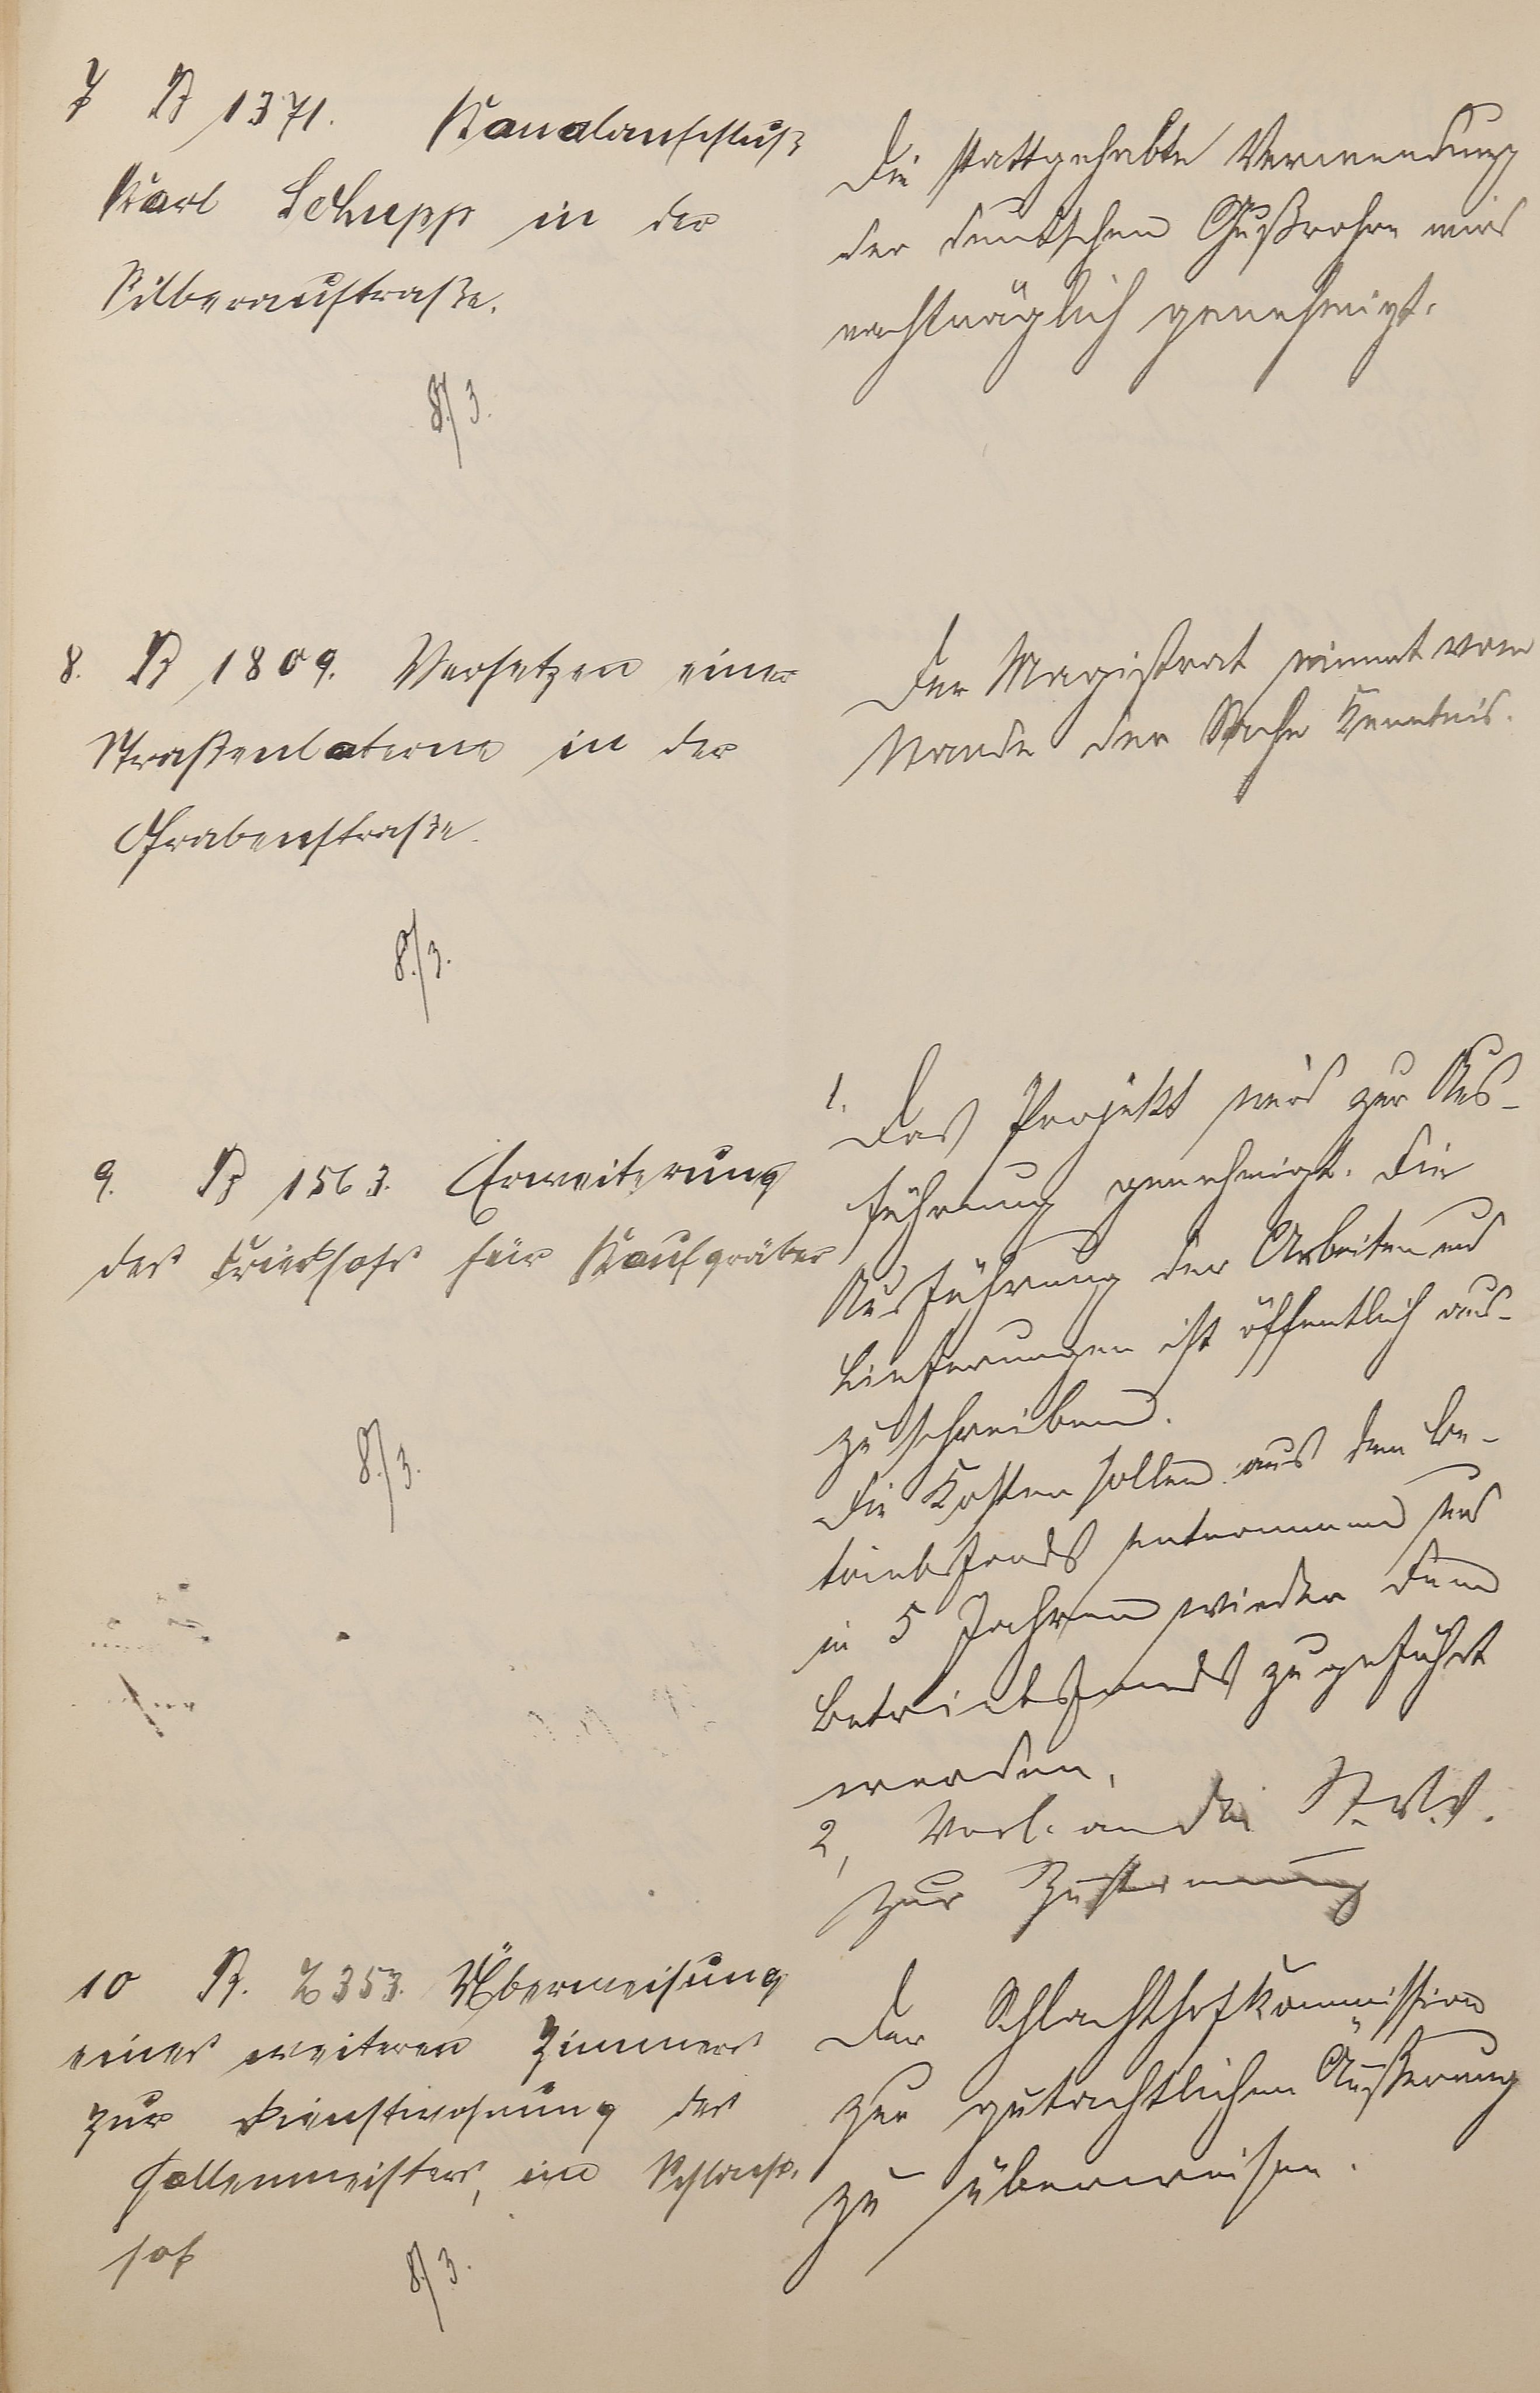 7 B 1371. Kanalanschluß
Karl Schupp in der
Silberaustraße.
8./3.
Die stattgehabte Verwendung
der deutschen Gußrohre wird
nachträglich genehmigt.
8. B 1809. Versetzen einer
Straßenlaterne in der
Grabenstraße.
8./3.
Der Magistrat nimmt vom
Stande der Sache Kenntnis.
9. B 1563. Erweiterung
des Friedhofs für Kaufgräber
8./3.
1. Das Projekt wird zur Aus-
führung genehmigt. Die
Ausführung der Arbeiten und
Lieferungen ist öffentlich aus-
zuschreiben.
Die Kosten sollen aus dem Be-
triebsfonds entnommen und
in 5 Jahren wieder dem
Betriebsfonds zugeführt
werden.
2, Vorl. an die St.V.V.
zur Zustimmung
10 B. 2353. Überweisung
eines weiteren Zimmers
zur Dienstwohnung des
Hallenmeisters, im Schlacht-
hof
8./3.
Der Schlachthofkommission
zur gutachtlichen Äußerung
zu überweisen.